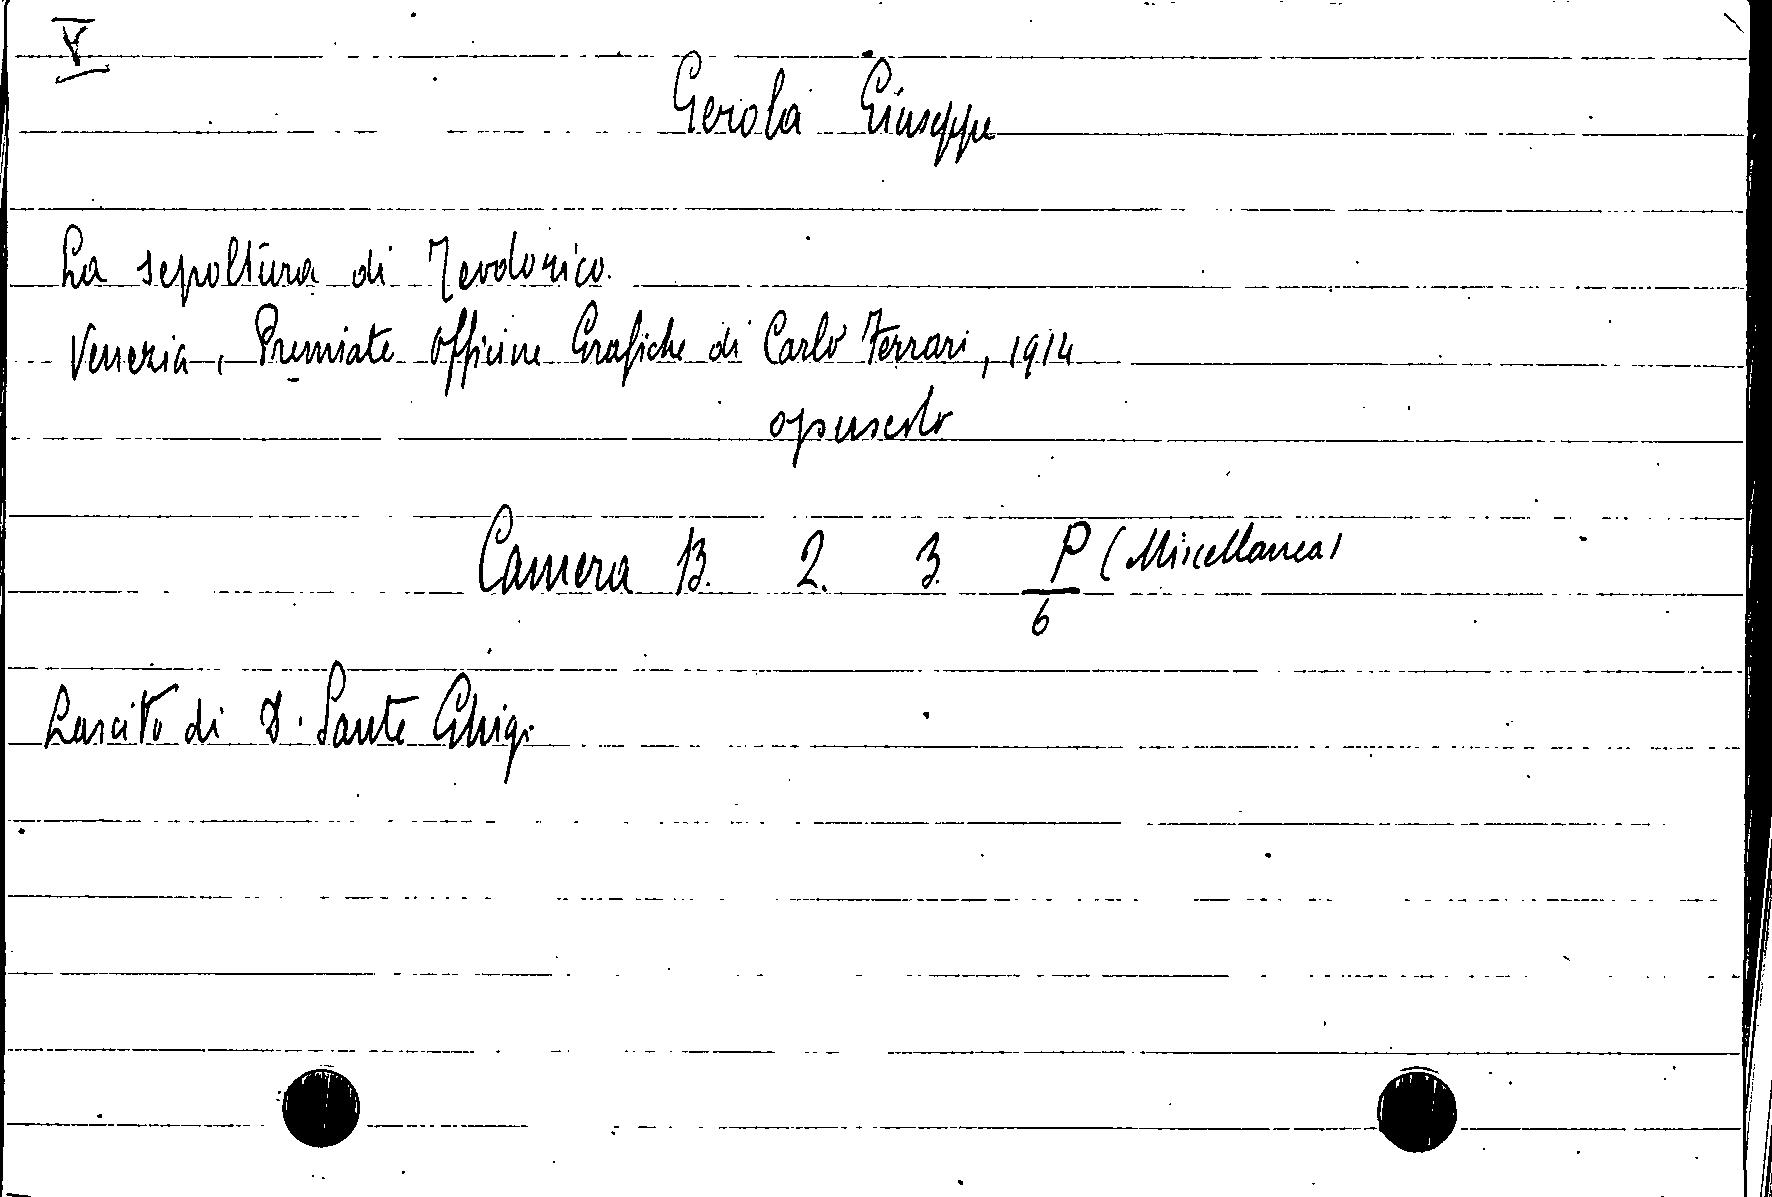 V
Gerola Giuseppe
La sepoltura di Teodorico.
Venezia, Premiate Officine Grafiche di Carlo Ferrari, 1914
opuscolo
Camera B. 2. 3. P (Miscellanea)
6
Lascito di D. Sante Ghigi